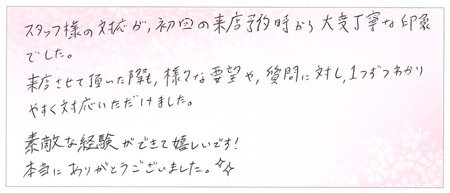 スタッフ様の対応が、初回の来店予約時から大変丁寧な印象
でした。
来店させて頂いた際も、様々な要望や、質問に対し、1つずつわかり
やすく対応いただけました。
素敵な経験ができて嬉しいです!
本当にありがとうございました。☆☆